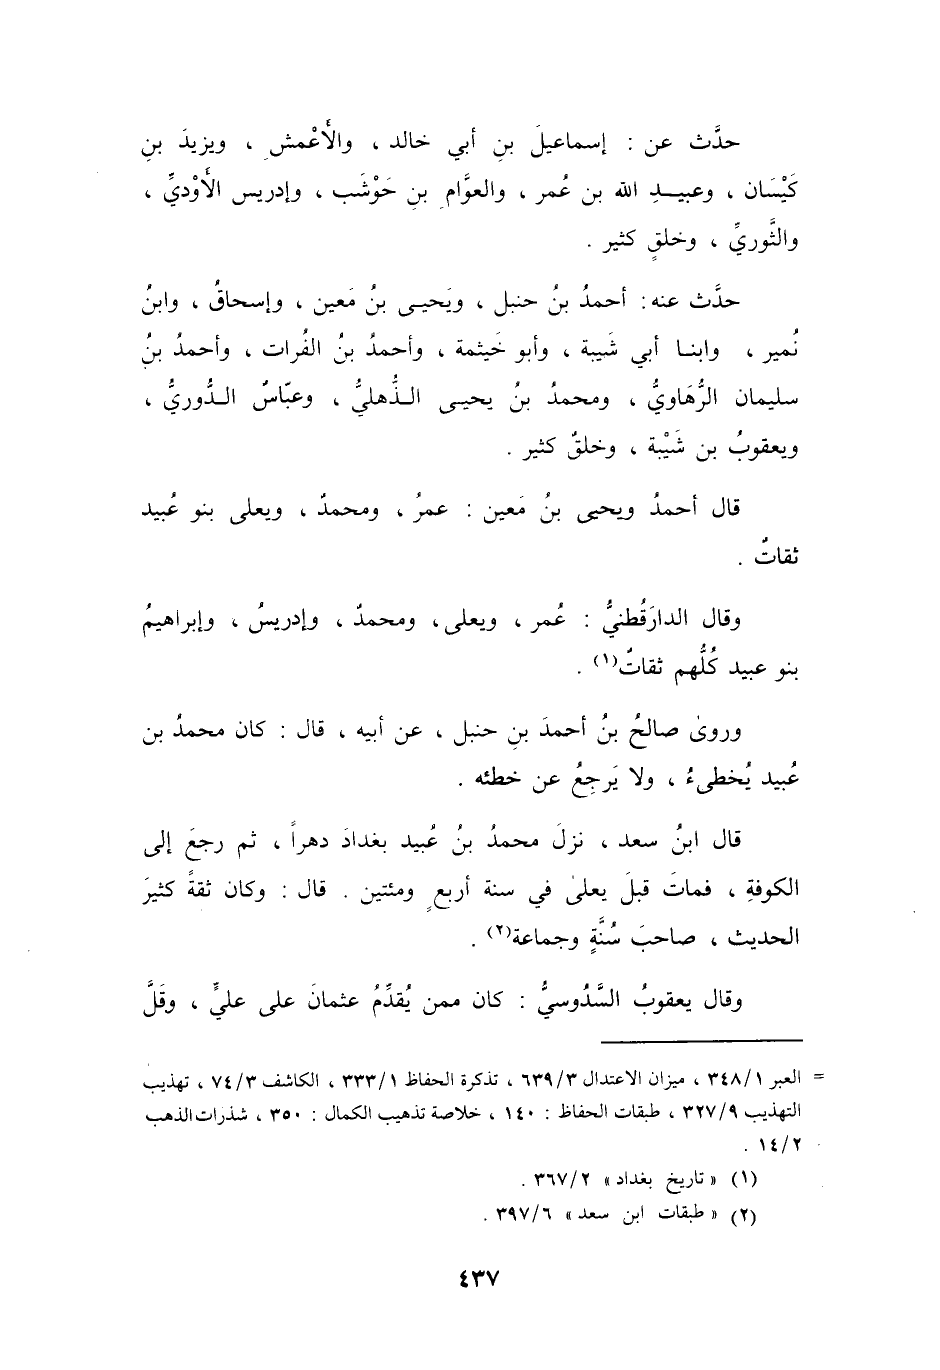 حدَّث عن : إسماعيلَ بنِ أبي خالد ، والأَعْمش ، ويزيدَ بنِ
كَيْسَان ، وعبيــدِ الله بن عُمر ، والعوَّامِ بنِ حَوْشَب ، وإدريس الأَوْديِّ ،
والثَّوريِّ ، وخلقٍ كثير .
حدَّث عنه : أحمدُ بنُ حنبل ، ويَحيـى بنُ مَعين ، وإسحاقُ ، وابنُ
نُمير ، وابنـا أبي شَيبة ، وأبو خَيثمة ، وأحمدُ بنُ الفُرات ، وأحمدُ بنُ
سليمان الرُّهَاويُّ ، ومحمدُ بنُ يحيـى الـذُّهليُّ ، وعبّاسٌ الـدُّوريُّ ،
ويعقوبُ بن شَيْبة ، وخلقٌ كثير .
قال أحمدُ ويحيى بنُ مَعين : عمرُ ، ومحمدٌ ، ويعلى بنو عُبيد
ثقاتٌ .
وقال الدارَقُطنيُّ : عُمر ، ويعلى ، ومحمدٌ ، وإدريسُ ، وإبراهيمُ
بنو عبيد كُلُّهم ثقاتٌ(١) .
وروىٰ صالحُ بنُ أحمدَ بنِ حنبل ، عن أبيه ، قال : كان محمدُ بن
عُبيد يُخطىءُ ، ولا يَرجِعُ عن خطئه .
قال ابنُ سعد ، نزلَ محمدُ بنُ عُبيد بغدادَ دهراً ، ثم رجعَ إلى
الكوفةِ ، فماتَ قبلَ يعلىٰ في سنة أربعٍ ومئتين . قال : وكان ثقةً كثيرَ
الحديث ، صاحبَ سُنَّةٍ وجماعة(٢) .
وقال يعقوبُ السَّدُوسيُّ : كان ممن يُقدِّمُ عثمانَ على عليٍّ ، وقَلَّ
= العبر ٣٤٨/١ ، ميزان الاعتدال ٦٣٩/٣ ، تذكرة الحفاظ ٣٣٣/١ ، الكاشف ٧٤/٣ ، تهذيب
التهذيب ٣٢٧/٩ ، طبقات الحفاظ : ١٤٠ ، خلاصة تذهيب الكمال : ٣٥٠ ، شذرات الذهب
١٤/٢ .
(١) « تاريخ بغداد » ٣٦٧/٢ .
(٢) « طبقات ابن سعد » ٣٩٧/٦ .
٤٣٧